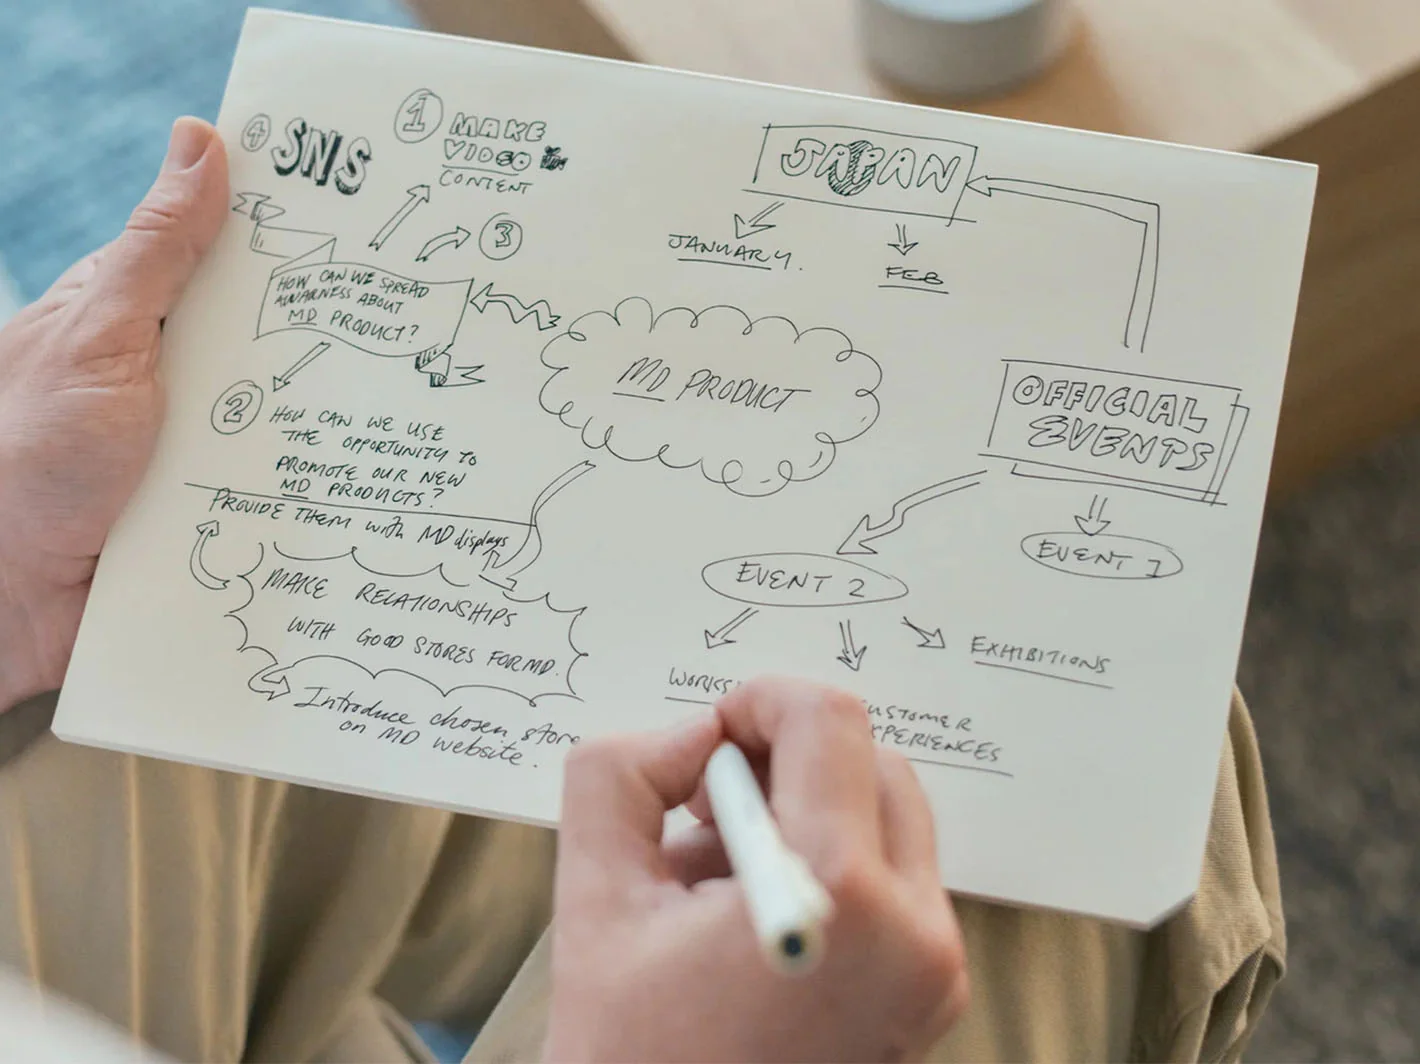 4 SNS
1 MAKE
VIDEO
CONTENT
3
HOW CAN WE SPREAD
AWARNESS ABOUT
MD PRODUCT?
2 HOW CAN WE USE
THE OPPORTUNITY TO
PROMOTE OUR NEW
MD PRODUCTS?
PROVIDE THEM WITH MD displays
MAKE RELATIONSHIPS
WITH GOOD STORES FOR MD.
Introduce chosen store
on MD website.
MD PRODUCT
JAPAN
JANUARY.
FEB
OFFICIAL
EVENTS
EVENT 1
EVENT 2
EXHIBITIONS